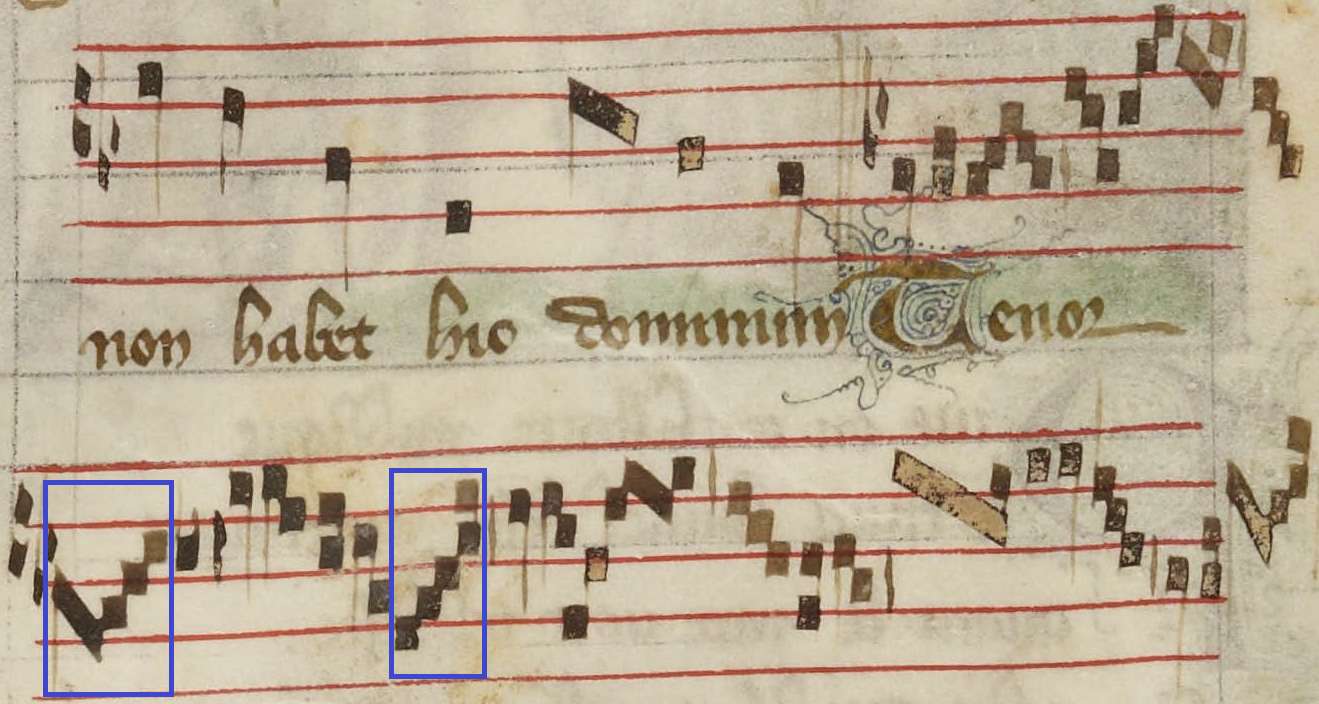 non habet hic dominium Tenor